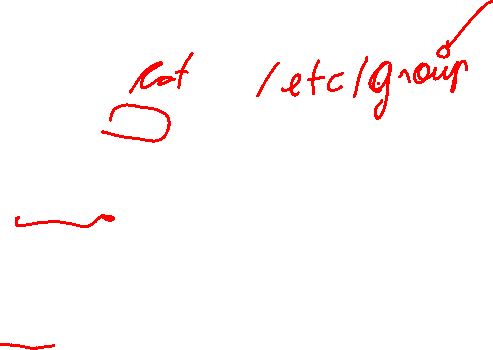 cat /etc/group